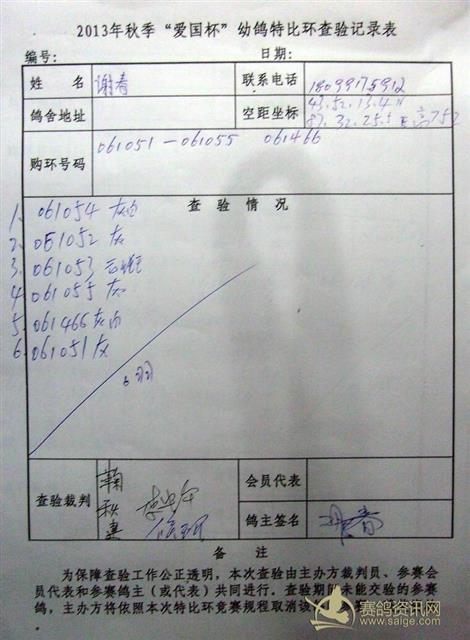 2013年秋季“爱国杯”幼鸽特比环查验记录表
编号: 日期:
姓名 谢春 联系电话 18099175912
鸽舍地址 空距坐标 43.52.13.4N
87.32.25.5E 高752
购环号码 061051-061055 061466
查验情况
1. 061054 灰白
2. 061052 灰
3. 061053
4. 061055 灰
5. 061466 灰白
6. 061051 灰
6羽
查验裁判 会员代表
鸽主签名
备注
为保障查验工作公正透明，本次查验由主办方裁判员、参赛会
员代表和参赛鸽主（或代表）共同进行。查验期间未能交验的参赛
鸽，主办方将依照本次特比环竞赛规程取消该
赛鸽资讯网
www.saige.com